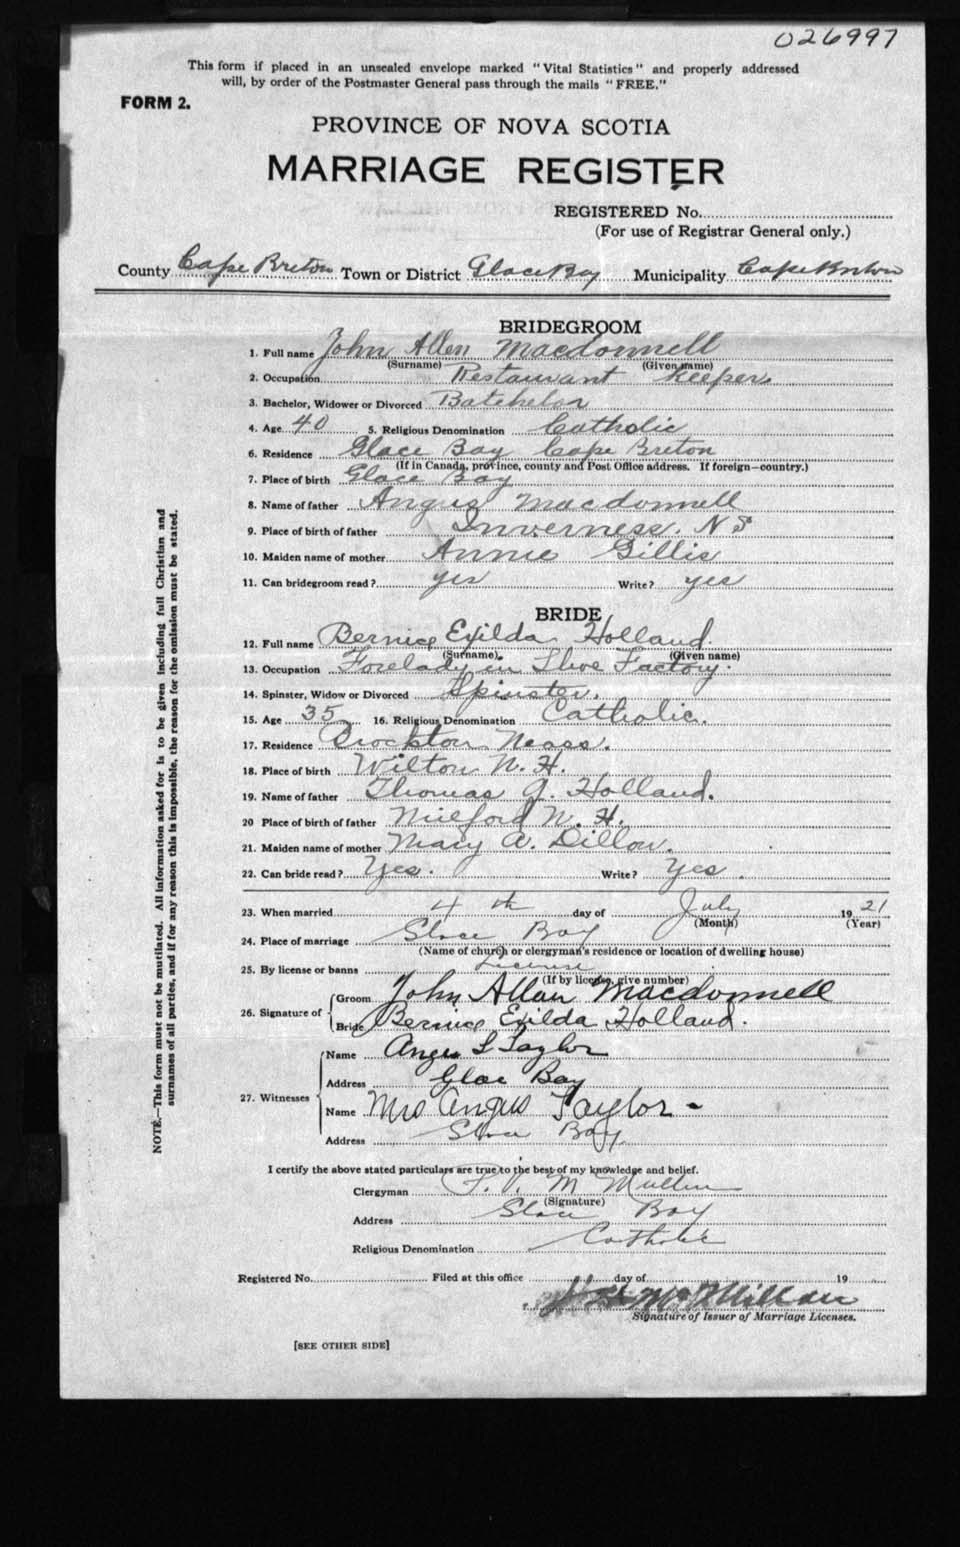 026997
This form if placed in an unsealed envelope marked "Vital Statistics" and properly addressed
will, by order of the Postmaster General pass through the mails "FREE."
FORM 2.
PROVINCE OF NOVA SCOTIA
MARRIAGE REGISTER
REGISTERED No.
(For use of Registrar General only.)
County Cape Breton Town or District Glace Bay Municipality Cape Breton
BRIDEGROOM
1. Full name John Allen Macdonnell
(Surname) (Given name)
2. Occupation Restaurant Keeper.
3. Bachelor, Widower or Divorced Batchelor
4. Age 40 5. Religious Denomination Catholic
6. Residence Glace Bay Cape Breton
(If in Canada, province, county and Post Office address. If foreign—country.)
7. Place of birth Glace Bay
8. Name of father Angus Macdonnell
9. Place of birth of father Inverness. N S
10. Maiden name of mother Annie Gillis
11. Can bridegroom read? yes Write? yes
BRIDE
12. Full name Bernice Exilda Holland.
(Surname) (Given name)
13. Occupation Forelady in Shoe Factory.
14. Spinster, Widow or Divorced Spinster.
15. Age 35 16. Religious Denomination Catholic.
17. Residence Brockton Mass.
18. Place of birth Wilton N. H.
19. Name of father Thomas J. Holland.
20 Place of birth of father Milford N. H.
21. Maiden name of mother Mary A. Dillon.
22. Can bride read? Yes. Write? Yes.
23. When married 4 th day of July 1921
(Month) (Year)
24. Place of marriage Glace Bay
(Name of church or clergyman's residence or location of dwelling house)
25. By license or banns License
(If by license, give number)
26. Signature of Groom John Allan Macdonnell
Bride Bernice Exilda Holland.
27. Witnesses Name Angus L Taylor
Address Glace Bay
Name Mrs Angus Taylor -
Address Glace Bay
I certify the above stated particulars are true to the best of my knowledge and belief.
Clergyman
(Signature)
Address Glace Bay
Religious Denomination Catholic
Registered No. Filed at this office day of 19
McMillan
Signature of Issuer of Marriage Licenses.
[SEE OTHER SIDE]
NOTE.—This form must not be mutilated. All information asked for is to be given including full Christian and
surnames of all parties, and if for any reason this is impossible, the reason for the omission must be stated.